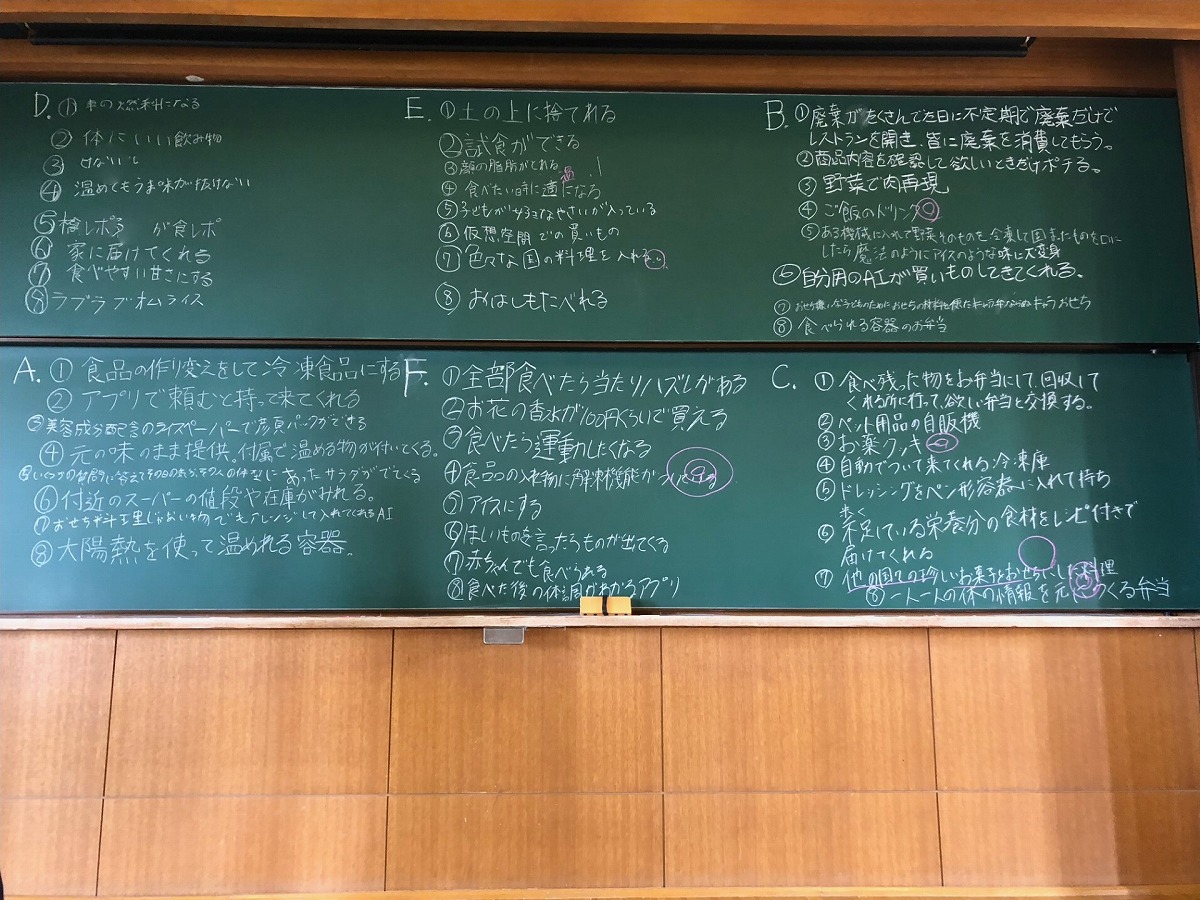 D. ① 車の燃料になる
② 体にいい飲み物
③ せない
④ 温めてもうま味が抜けない
⑤ 検レポる が食レポ
⑥ 家に届けてくれる
⑦ 食べやすい甘さにする
⑧ ラブラブオムライス
E. ① 土の上に捨てれる
② 試食ができる
③ 顔の脂肪がとれる
④ 食べたい時に適になる
⑤ 子どもが好きなやさいが入っている
⑥ 仮想空間での買いもの
⑦ 色々な国の料理を入れる
⑧ おはしもたべれる
B. ① 廃棄がたくさんでた日に不定期で廃棄だけで
レストランを開き、皆に廃棄を消費してもらう。
② 商品内容を確認して欲しいときだけポチる。
③ 野菜で肉再現
④ ご飯のドリンク
⑤ ある機械に入れて野菜そのものを冷凍して固まったものを口に
したら魔法のようにアイスのような味に大変身
⑥ 自分用のAIが買いものしてきてくれる。
⑦ おせち嫌いな子どものために おせちの材料を使たキャラ弁ならぬキャラおせち
⑧ 食べられる容器のお弁当
A. ① 食品の作り変えをして冷凍食品にする
② アプリで頼むと持って来てくれる
③ 美容成分配合のライスペーパーで夜食パックができる
④ 元の味のまま提供。付属で温める物が付いてくる。
⑤ いくつかの質問に答えてその日の気分やその人の体型にあったサラダがでてくる
⑥ 付近のスーパーの値段や在庫がみれる。
⑦ おせち料理じゃない物でもアレンジして入れてくれるAI
⑧ 太陽熱を使って温めれる容器。
F. ① 全部食べたら当たりハズレがある
② お花の香水が100円くらいで買える
③ 食べたら運動したくなる
④ 食品の入れ物に解凍機能がついてる
⑤ アイスにする
⑥ ほしいものを言ったらものが出てくる
⑦ 赤ちゃんでも食べられる
⑧ 食べた後の体調がわかるアプリ
C. ① 食べ残った物をお弁当にして、回収して
くれる所に行って、欲しい弁当と交換する。
② ペット用品の自販機
③ お薬クッキー
④ 自動でついて来てくれる冷凍庫
⑤ ドレッシングをペン形容器に入れて持ち
歩く
⑥ 不足している栄養分の食材をレシピ付きで
届けてくれる
⑦ 他の国での珍しいお菓子をおせちにした料理
⑧ 一人一人の体の情報を元につくる弁当